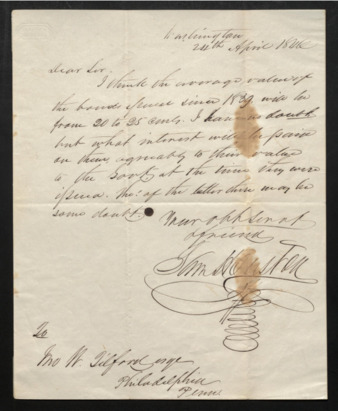 Washington
24th April 1846
Dear Sir.
I think the average value of
the bonds issued since 1839 will be
from 20 to 25 cents. I have no doubt
but what interest will be paid
on them, agreeably to their value
to the at the time they were
issued. tho: of the latter there may be
some doubt.
Your obt Servt
& friend
Sam Houston
To
Jno W. Tilford esqr
Philadelphia
Penn